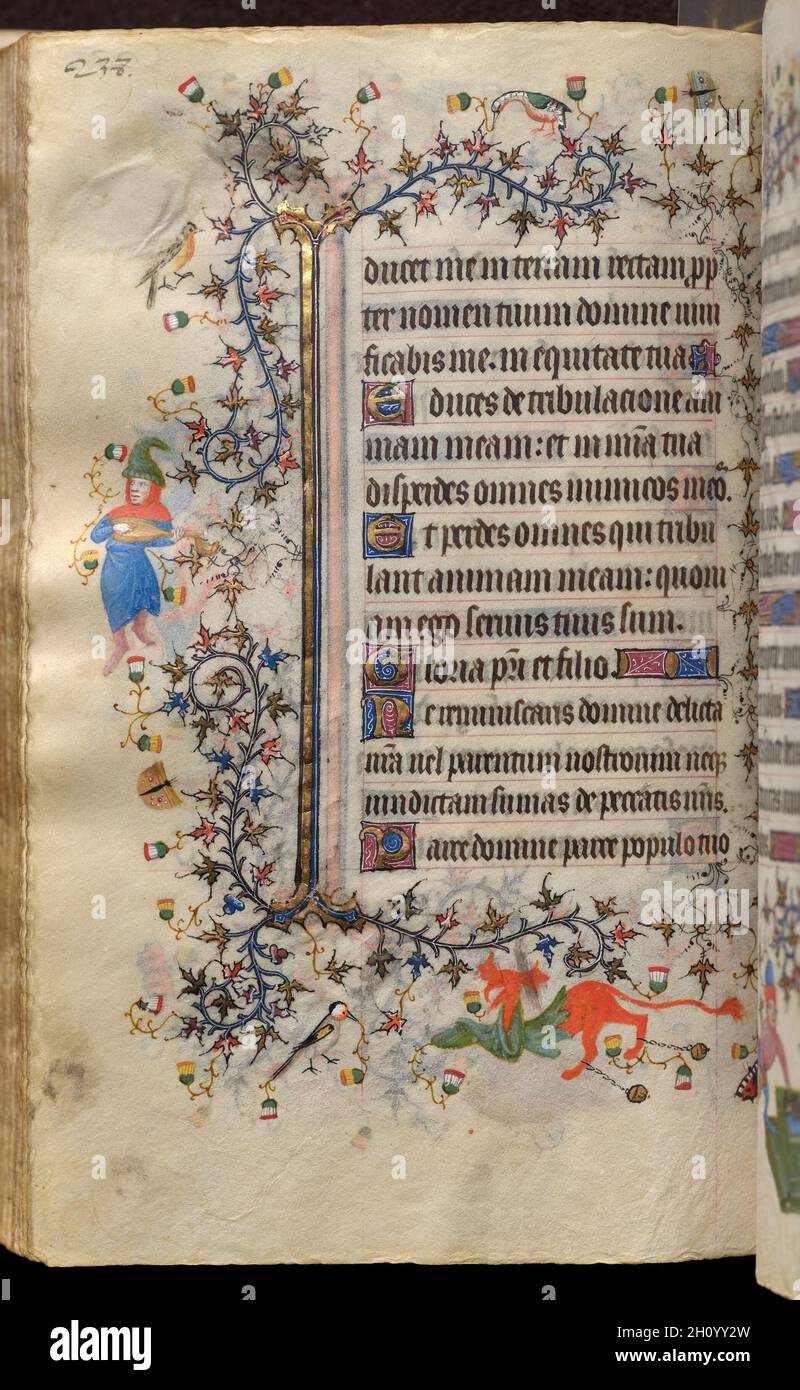 237.
ducet me in terram rectam, pp
ter nomen tuum domine uiui
ficabis me. in equitate tua
Educes de tribulacione ani
mam meam: et in mia tua
disperdes omnes inimicos meos.
Et perdes omnes qui tribu
lant animam meam: quoni
am ego seruus tuus sum.
Gloria pri et filio.
Ne reminiscaris domine delicta
nra uel parentum nostrorum neqz
uindictam sumas de peccatis nris.
Parce domine parce populo tuo
alamy
Image ID: 2H0YY2W
www.alamy.com